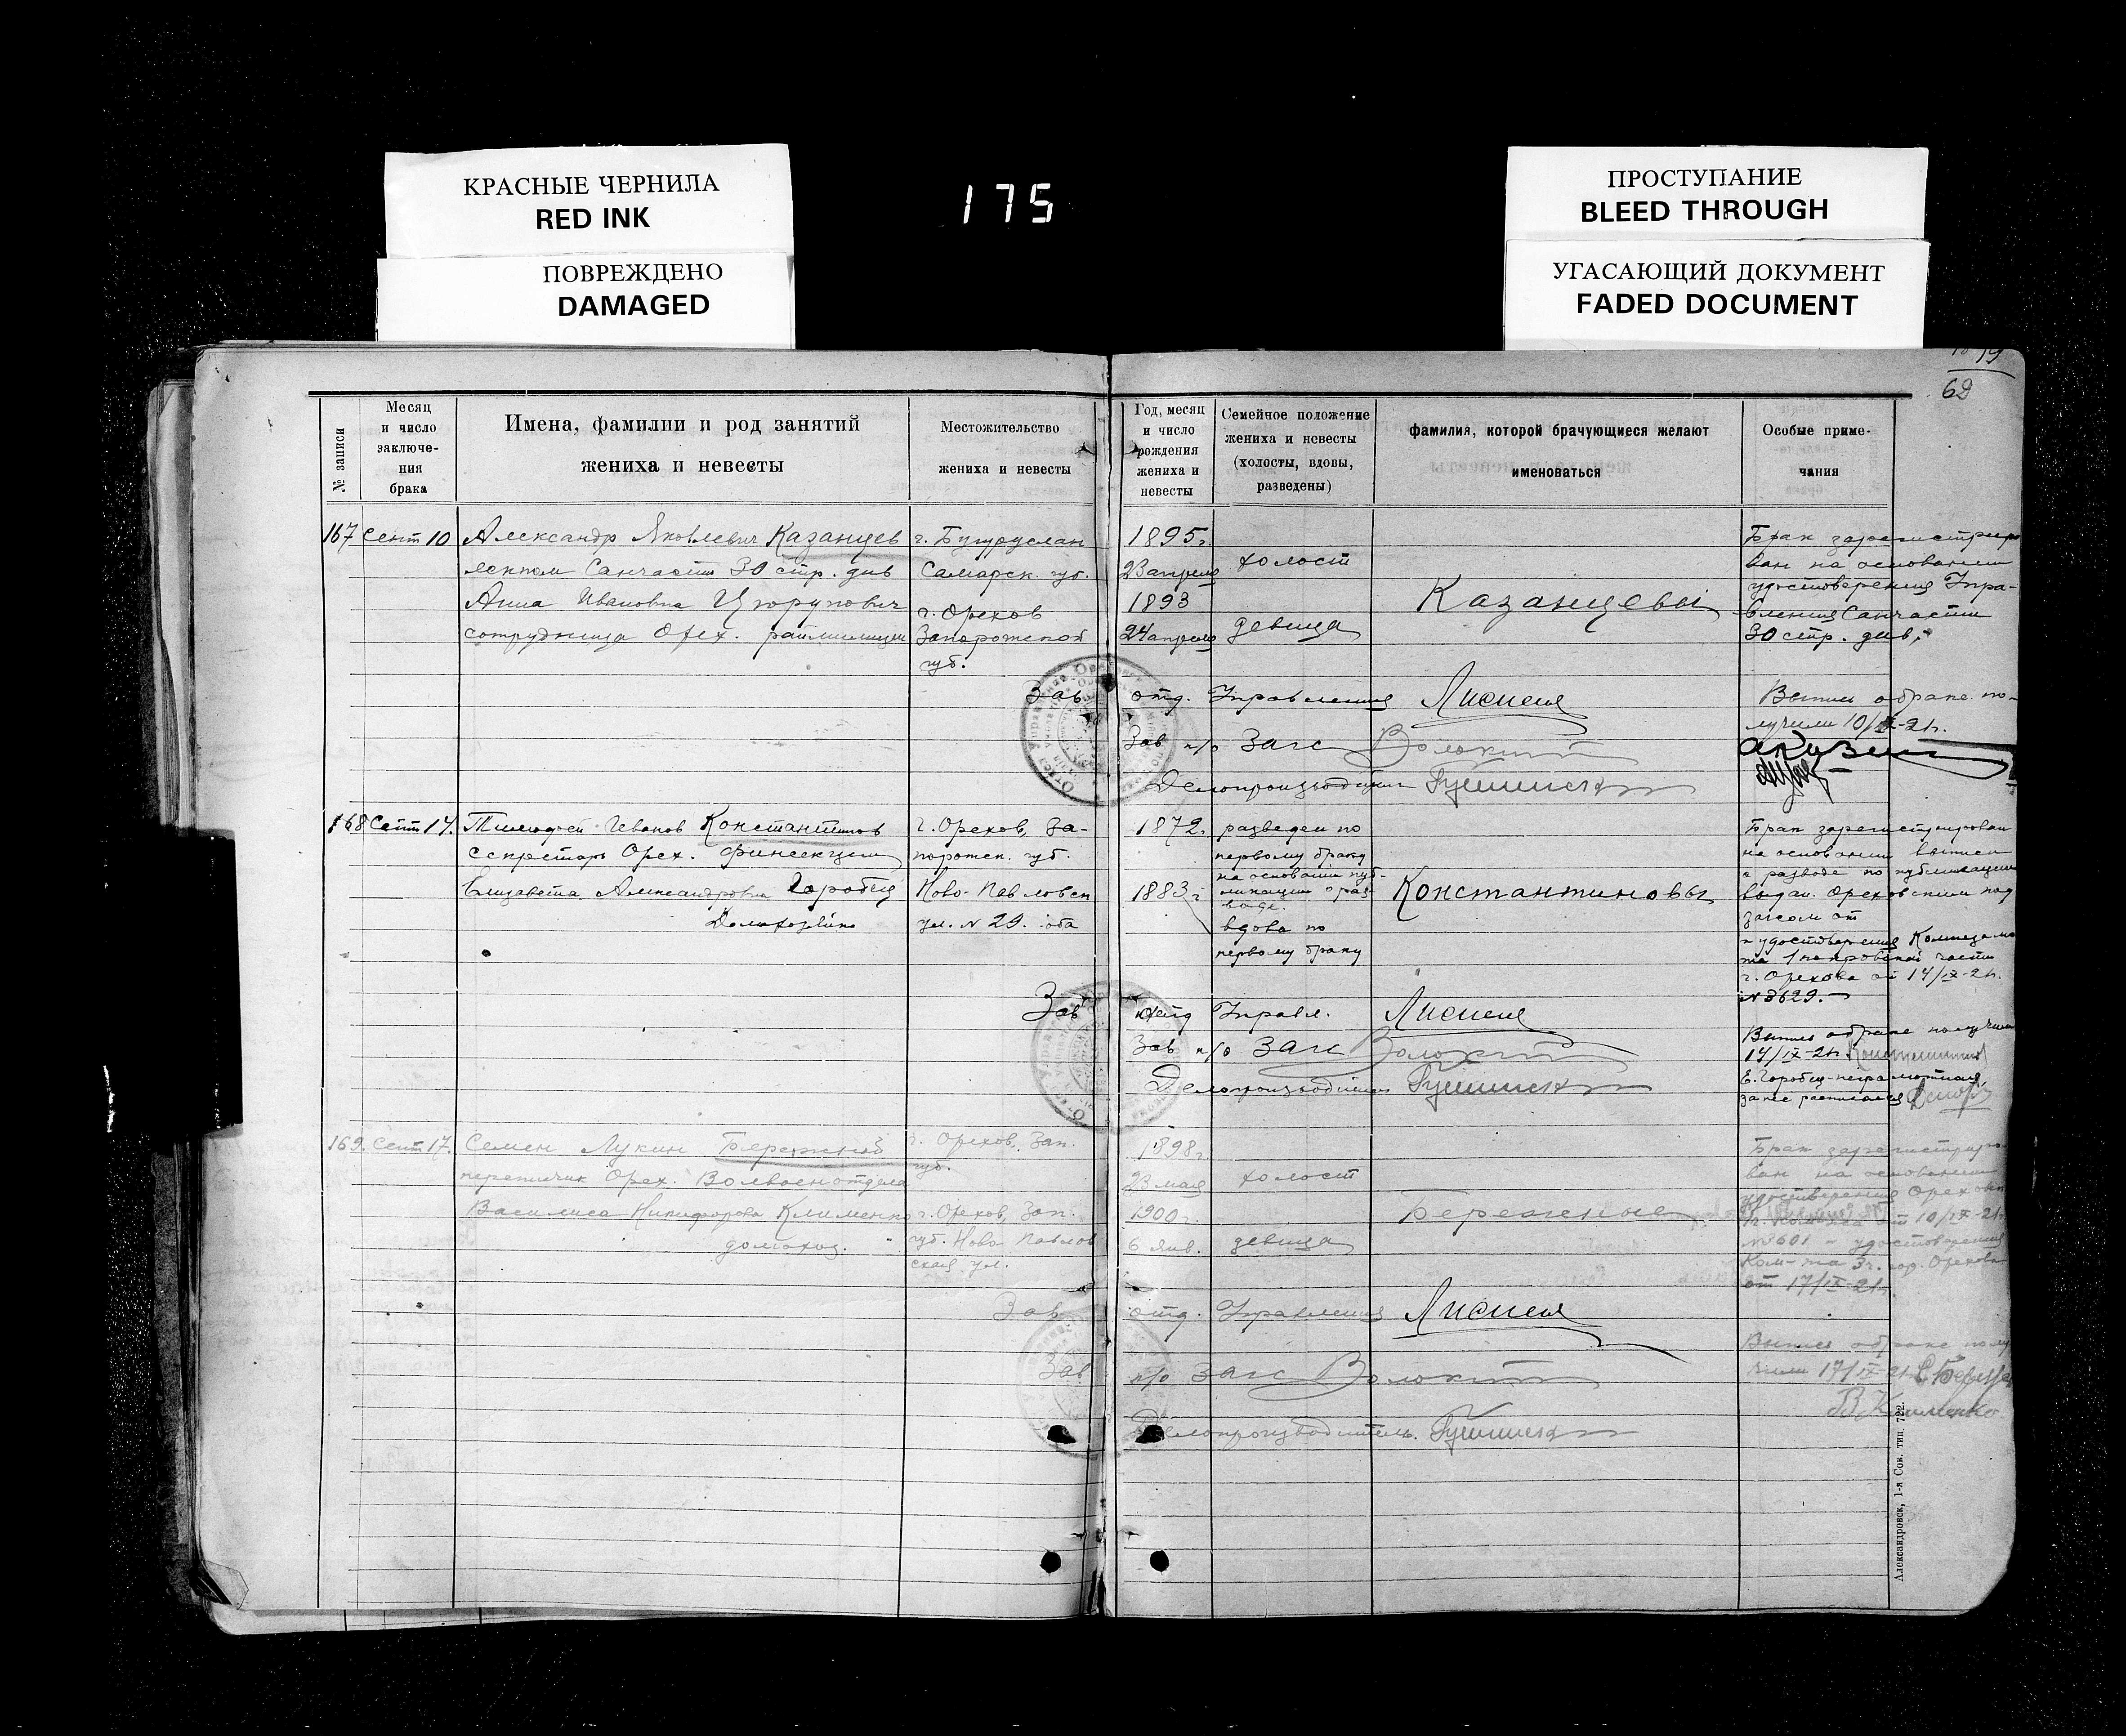 КРАСНЫЕ ЧЕРНИЛА
RED INK
ПОВРЕЖДЕНО
DAMAGED
175
ПРОСТУПАНИЕ
BLEED THROUGH
УГАСАЮЩИЙ ДОКУМЕНТ
FADED DOCUMENT
19
62
№ записи
Месяц
и число
заключе-
ния
брака
Имена, фамилии и род занятий
жениха и невесты
Местожительство
жениха и невесты
Год, месяц
и число
рождения
жениха и
невесты
Семейное положение
жениха и невесты
(холосты, вдовы,
разведены)
фамилия, которой брачующиеся желают
именоваться
Особые приме-
чания
167 Сент 10
Александр Яковлевич Казанцев
лекпом Санчасти 30 стр. див
Анна Ивановна
сотрудница Орех.
г. Бугуруслан
Самарск. губ.
г. Орехов
Запорожской
губ.
1895 г.
23 апреля
1893
24 апреля
холост
девица
Казанцевы
Брак зарегистриро
ван на основании
удостоверения Упра-
вления Санчасти
30 стр. див.
Зав отд. Управления
Зав п/о Загс
Делопроизводитель
Выпись о браке по-
лучили 10/IX-21г.
168 Сент 14.
Иванов Константинов
секретарь Орех.
Елизавета Александровна Горобец
Домохозяйка
г. Орехов, За-
порожск. губ.
Ново-Павловск
ул. № 29. оба
1872 г.
1883 г
разведен по
первому браку
на основании пуб-
ликации о раз-
воде.
вдова по
первому браку
Константиновы
Брак зарегистрирован
на основании выписи
о разводе по публикации
выдан. Ореховским под
загсом от
и удостоверения
части
г. Орехова от 14/IX-21г.
№ 3629.
Зав отд Управл.
Зав п/о Загс
Делопроизводитель
Выпись о браке получили
14/IX-21г.
Е. Горобец-неграмотная,
за нее расписался
169. Сент 17.
Семен Лукин Бережной
переписчик Орех. Волвоенотдела
Василиса Никифорова Клименко
домохоз.
г. Орехов, Зап.
губ.
г. Орехов, Зап.
губ. Ново Павлов
ская ул.
1898 г.
23 мая
1900 г.
6 янв.
холост
девица
Бережные
Брак зарегистриро-
ван на основании
удостоверения Орехов
от 10/IX-21г.
№ 3601 и удостоверения
Ком-та 3 ч. гор. Орехова
от 17/IX-21г.
Зав отд. Управления
Зав п/о Загс
Делопроизводитель
Выпись о браке полу
чили 17/IX-21
В. Клименко
Александровск, 1-я Сов. тип. 722.